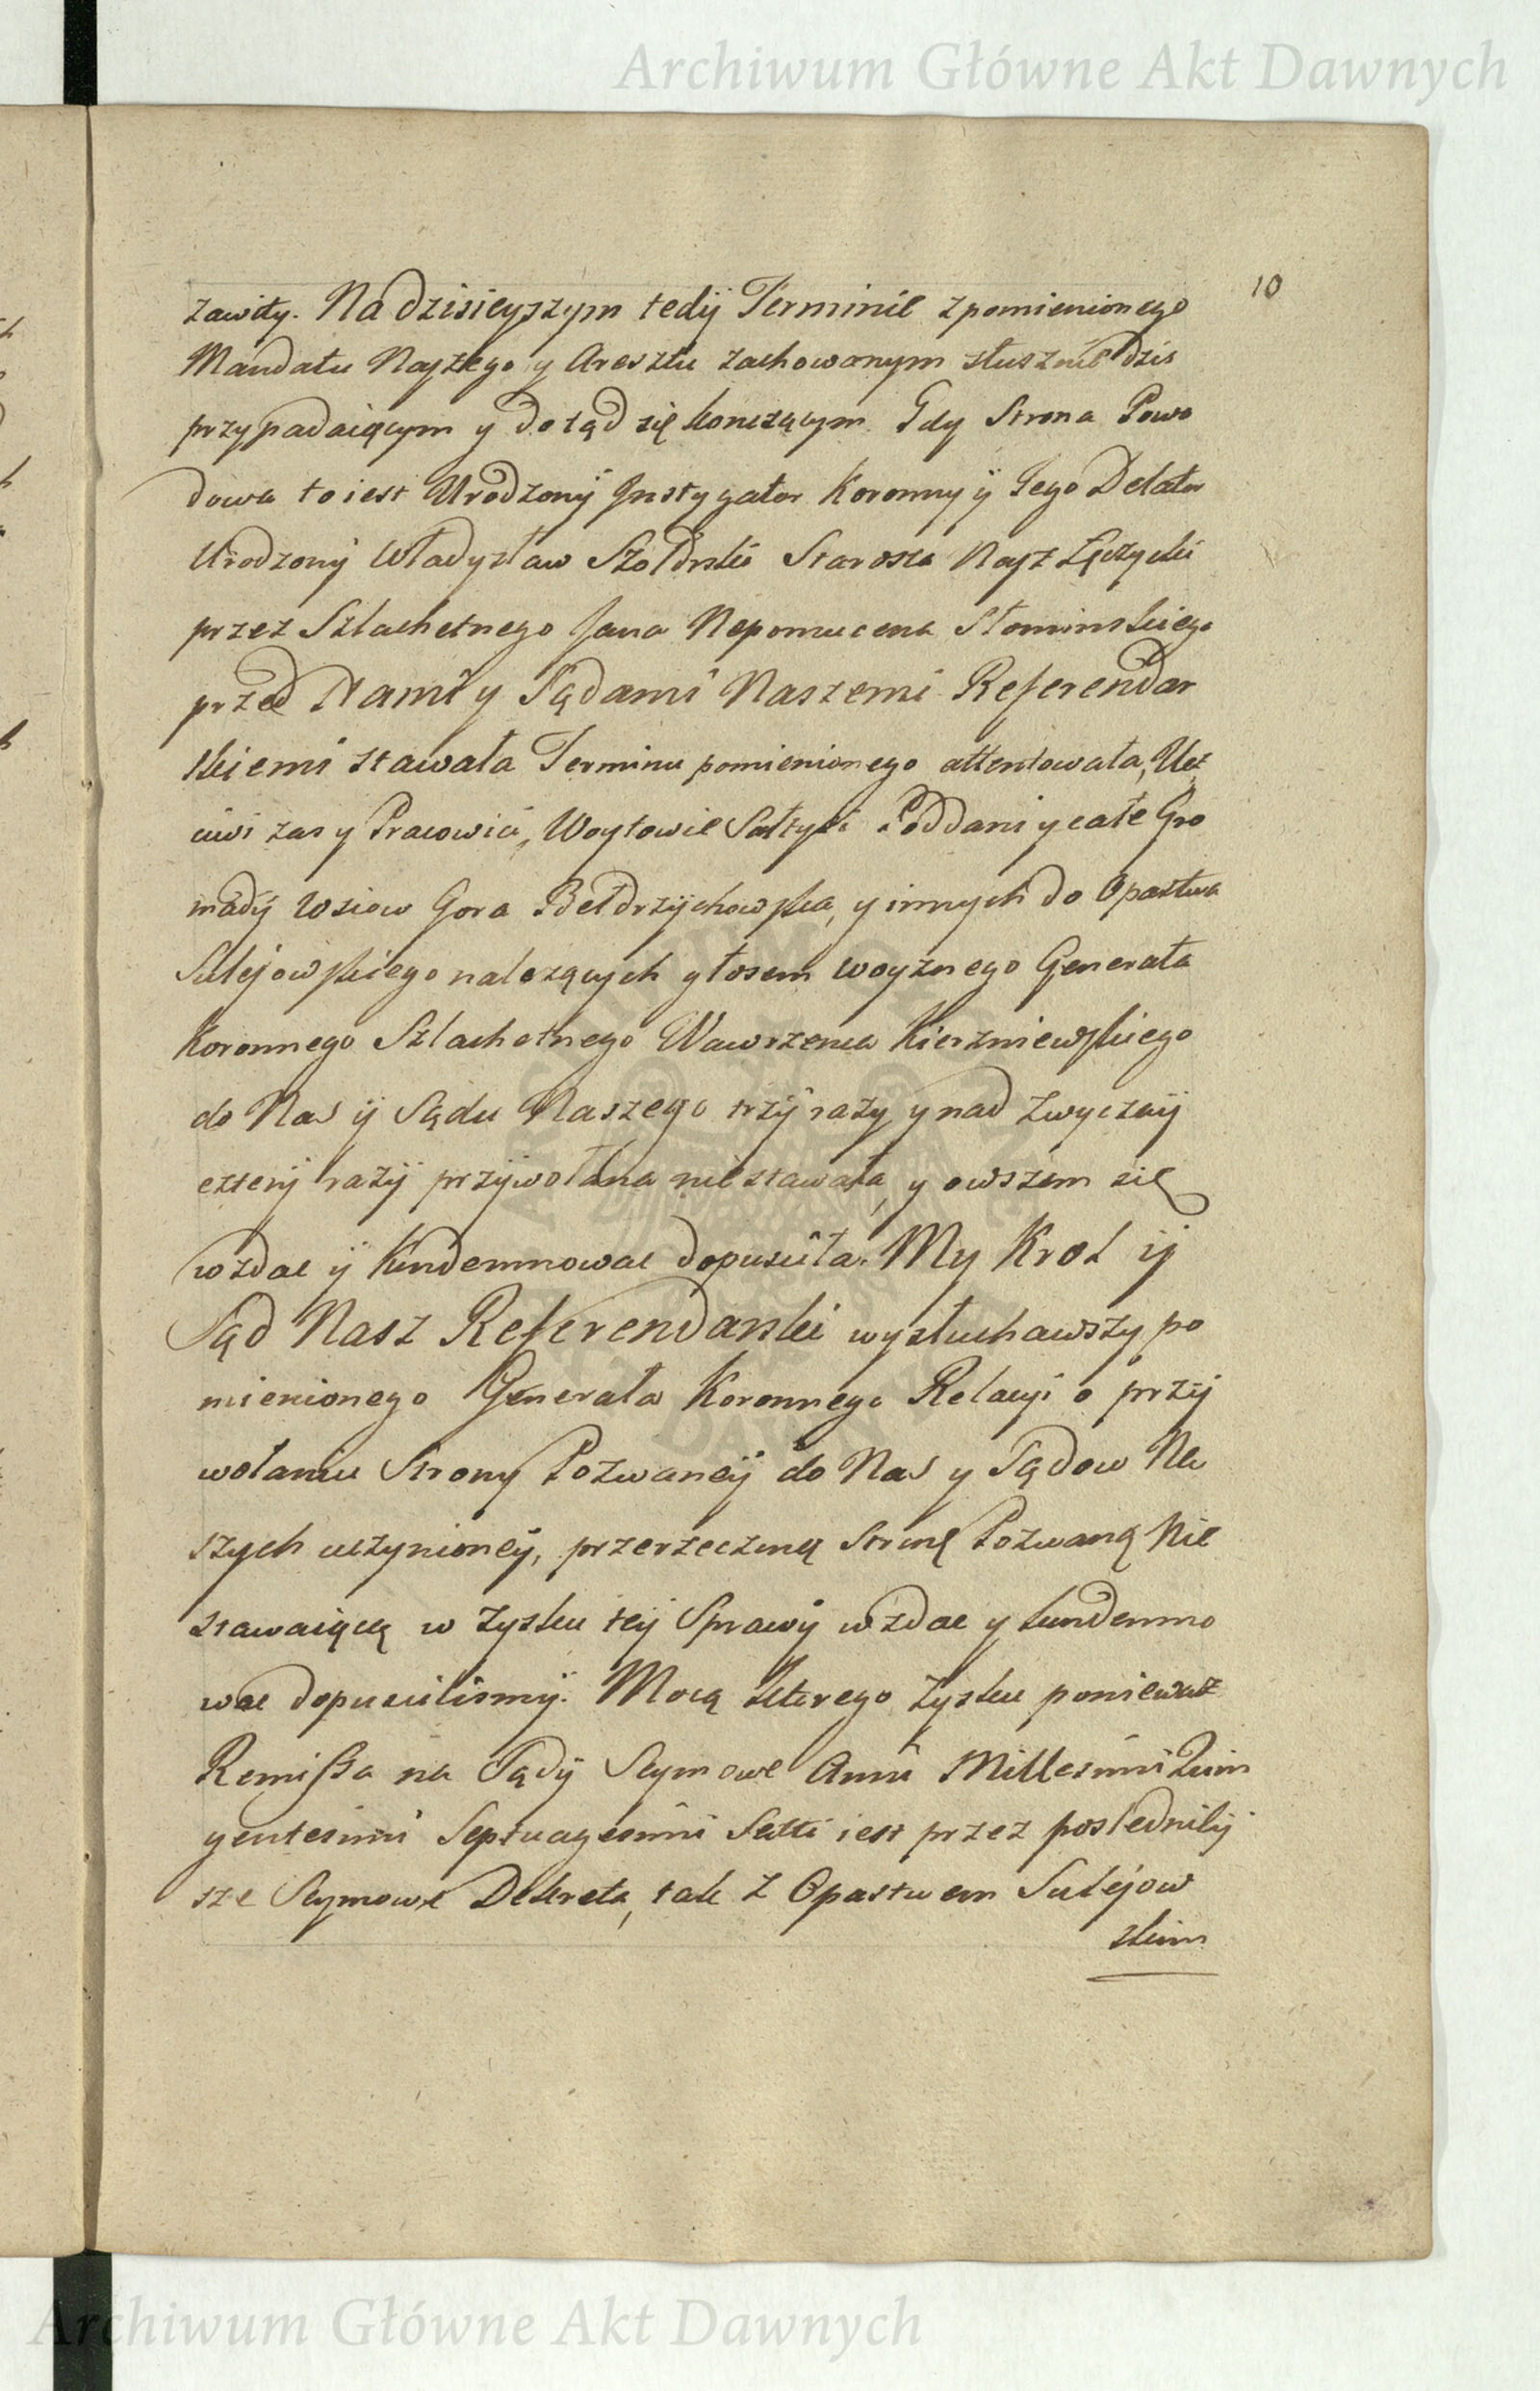 Archiwum Główne Akt Dawnych
10
zawity. Na dzisieyszym tedÿ Terminie zpomienionego
Mandatu Naszego y Aresztu zachowanym słusznie dzis
przypadaiącym y dotąd się konczącym. Gdy Strona Powo
dowa to iest Urodzonÿ Instygator Koronny ÿ Iego Delator
Urodzony Władysław Szołdrski Starosta Nasz Łęczycki
przez Szlachetnego Jana Nepomucena Słominskiego
przed Nami y Sądami Naszemi Referendar
skiemi stawała Terminu pomienionego attentowała, Ucz
ciwi zas y Pracowici, Woytowie Sołtysi Poddani y całe Gro
madÿ wsiow Gora Bełdrzychowska, y innych do Opastwa
Sulejowskiego należących głosem woyznego Generała
Koronnego Szlachetnego Wawrzenca Kierzniewskiego
do Nas ÿ Sądu Naszego trzÿ razy y nad zwyczaÿ
czterÿ razÿ przÿwołana nie stawała, y owszem się
wzdac ÿ kondemnowac dopusciła. My Krol ÿ
Sąd Nasz Referendarski wysłuchawszy po
mienionego Generała Koronnego Relacyi o przÿ
wołaniu Strony Pozwaneÿ do Nas y Sądow Na
szych uczynioneÿ, przerzeczoną Stronę Pozwaną Nie
stawaiącą w zysku teÿ Sprawÿ wzdac y kondemno
wac dopuscilismÿ. Mocą ktorego zysku poniewasz
Remissa na Sądÿ Seymowe Anni Millesimi Quin
gentesimi Septuagesimi Sexti iest przez posledniÿ
sze Seymowe Dekreta, tak z Opastwem Sulejow
skim
Archiwum Główne Akt Dawnych